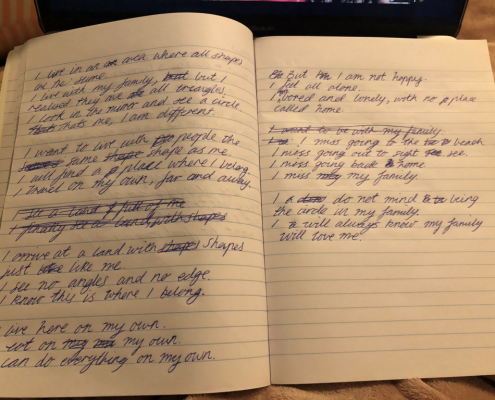 I live in an area where all shapes
are the same.
I live with my family, but I
realised they are all triangles.
I look in the mirror and see a circle.
That's me, I am different.
I want to live with people the
same shape as me.
I will find a place where I belong.
I travel on my own, far and away.
I see a land full of the
I finally see a land with shapes
I arrive at a land with shapes shapes
just like me
I see no angles and no edge.
I know this is where I belong.
live here on my own.
eat on my own.
can do everything on my own.
But I am not happy.
I feel all alone.
bored and lonely, with no place
called home.
I want to be with my family
I miss going to the beach
I miss going out to sight see.
I miss going back home
I miss my family.
I do not mind being
the circle in my family.
I will always know my family
will love me.